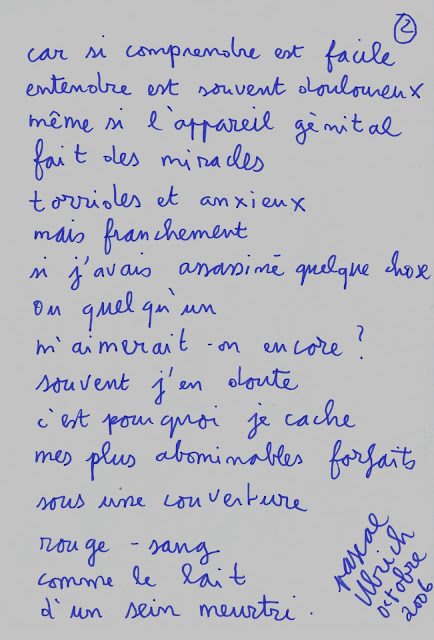 2
car si comprendre est facile
entendre est souvent douloureux
même si l'appareil génital
fait des miracles
torrides et anxieux
mais franchement
si j'avais assassiné quelque chose
ou quelqu'un
m'aimerait-on encore ?
souvent j'en doute
c'est pourquoi je cache
mes plus abominables forfaits
sous une couverture
rouge-sang
comme le lait
d'un sein meurtri.
Pascal
Ulrich
octobre
2006